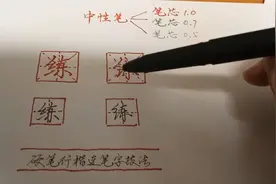 中性笔
笔芯 1.0
笔芯 0.7
笔芯 0.5
练 练
练 练
硬笔行楷运笔字技法